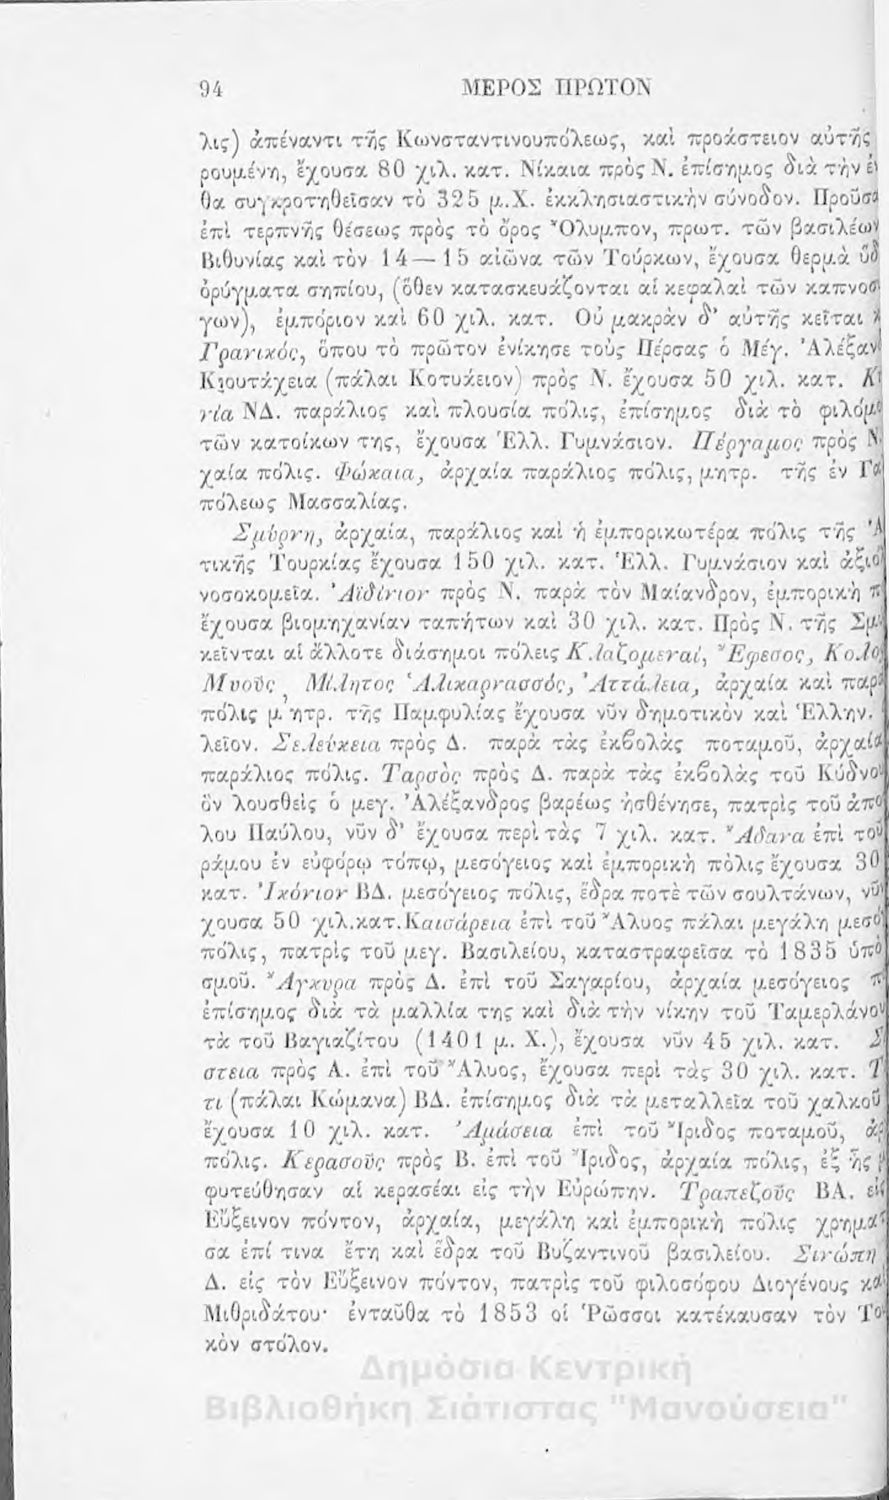 94 ΜΕΡΟΣ ΠΡΩΤΟΝ
λις) ἀπέναντι τῆς Κωνσταντινουπόλεως, καὶ προάστειον αὐτῆς
ρουμένη, ἔχουσα 80 χιλ. κατ. Νίκαια πρὸς Ν. ἐπίσημος διὰ τὴν ἐν
θα συγκροτηθεῖσαν τὸ 325 μ.Χ. ἐκκλησιαστικὴν σύνοδον. Προῦσα
ἐπὶ τερπνῆς θέσεως πρὸς τὸ ὄρος Ὄλυμπον, πρωτ. τῶν βασιλέων
Βιθυνίας καὶ τὸν 14 — 15 αἰῶνα τῶν Τούρκων, ἔχουσα θερμὰ ὕδ
ὀρύγματα σηπίου, (ὅθεν κατασκευάζονται αἱ κεφαλαὶ τῶν καπνοσ
γων), ἐμπόριον καὶ 60 χιλ. κατ. Οὐ μακρὰν δ' αὐτῆς κεῖται
Γρανικός, ὅπου τὸ πρῶτον ἐνίκησε τοὺς Πέρσας ὁ Μέγ. Ἀλέξαν
Κιουτάχεια (πάλαι Κοτυάειον) πρὸς Ν. ἔχουσα 50 χιλ. κατ.
νία ΝΔ. παράλιος καὶ πλουσία πόλις, ἐπίσημος διὰ τὸ φιλόμο
τῶν κατοίκων της, ἔχουσα Ἑλλ. Γυμνάσιον. Πέργαμος πρὸς Ν
χαία πόλις. Φώκαια, ἀρχαία παράλιος πόλις, μητρ. τῆς ἐν Γα
πόλεως Μασσαλίας.
Σμύρνη, ἀρχαία, παράλιος καὶ ἡ ἐμπορικωτέρα πόλις τῆς Ἀ
τικῆς Τουρκίας ἔχουσα 150 χιλ. κατ. Ἑλλ. Γυμνάσιον καὶ ἀξιό
νοσοκομεῖα. Ἀϊδίνιον πρὸς Ν. παρὰ τὸν Μαίανδρον, ἐμπορικὴ π
ἔχουσα βιομηχανίαν ταπήτων καὶ 30 χιλ. κατ. Πρὸς Ν. τῆς Σμ
κεῖνται αἱ ἄλλοτε διάσημοι πόλεις Κλαζομεναί, Ἔφεσος, Κολο
Μυοῦς, Μίλητος Ἁλικαρνασσός, Ἀττάλεια, ἀρχαία καὶ παρά
πόλις μ ητρ. τῆς Παμφυλίας ἔχουσα νῦν δημοτικὸν καὶ Ἑλλην.
λεῖον. Σελεύκεια πρὸς Δ. παρὰ τὰς ἐκβολὰς ποταμοῦ, ἀρχαία
παράλιος πόλις. Ταρσὸς πρὸς Δ. παρὰ τὰς ἐκβολὰς τοῦ Κύδνου
ὃν λουσθεὶς ὁ μεγ. Ἀλέξανδρος βαρέως ἠσθένησε, πατρὶς τοῦ ἀπο
λου Παύλου, νῦν δ' ἔχουσα περὶ τὰς 7 χιλ. κατ. Ἄδανα ἐπὶ τοῦ
ράμου ἐν εὐφόρῳ τόπῳ, μεσόγειος καὶ ἐμπορικὴ πόλις ἔχουσα 30
κατ. Ἰκόνιον ΒΔ. μεσόγειος πόλις, ἕδρα ποτὲ τῶν σουλτάνων, νῦν
χουσα 50 χιλ.κατ. Καισάρεια ἐπὶ τοῦ Ἅλυος πάλαι μεγάλη μεσό
πόλις, πατρὶς τοῦ μεγ. Βασιλείου, καταστραφεῖσα τὸ 1835 ὑπὸ
σμοῦ. Ἄγκυρα πρὸς Δ. ἐπὶ τοῦ Σαγαρίου, ἀρχαία μεσόγειος π
ἐπίσημος διὰ τὰ μαλλία της καὶ διὰ τὴν νίκην τοῦ Ταμερλάνου
τὰ τοῦ Βαγιαζίτου (1401 μ. Χ.), ἔχουσα νῦν 45 χιλ. κατ. Σ
στεια πρὸς Α. ἐπὶ τοῦ Ἅλυος, ἔχουσα περὶ τὰς 30 χιλ. κατ. Τ
τι (πάλαι Κώμανα) ΒΔ. ἐπίσημος διὰ τὰ μεταλλεῖα τοῦ χαλκοῦ
ἔχουσα 10 χιλ. κατ. Ἀμάσεια ἐπὶ τοῦ Ἴριδος ποταμοῦ, ἀρ
πόλις. Κερασοῦς πρὸς Β. ἐπὶ τοῦ Ἴριδος, ἀρχαία πόλις, ἐξ ἧς
φυτεύθησαν αἱ κερασέαι εἰς τὴν Εὐρώπην. Τραπεζοῦς ΒΑ. εἰς
Εὔξεινον πόντον, ἀρχαία, μεγάλη καὶ ἐμπορικὴ πόλις χρηματ
σα ἐπί τινα ἔτη καὶ ἕδρα τοῦ Βυζαντινοῦ βασιλείου. Σινώπη
Δ. εἰς τὸν Εὔξεινον πόντον, πατρὶς τοῦ φιλοσόφου Διογένους καὶ
Μιθριδάτου· ἐνταῦθα τὸ 1853 οἱ Ῥῶσσοι κατέκαυσαν τὸν Το
κὸν στόλον.
Δημόσια Κεντρική
Βιβλιοθήκη Σιάτιστας "Μανούσεια"